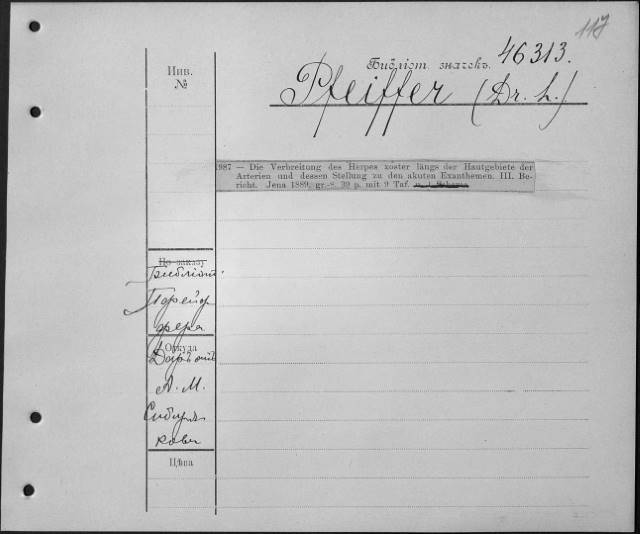 117
Библіот. значекъ. 46313.
Инв.
№
Pfeiffer (Dr. L.)
1987 — Die Verbreitung des Herpes zoster längs der Hautgebiete der
Arterien und dessen Stellung zu den akuten Exanthemen. III. Be-
richt. Jena 1889. gr.-8. 39 p. mit 9 Taf.
По заказу
Библіот.
Откуда
Даръ отъ
А. М.
Сибиря-
кова
Цѣна